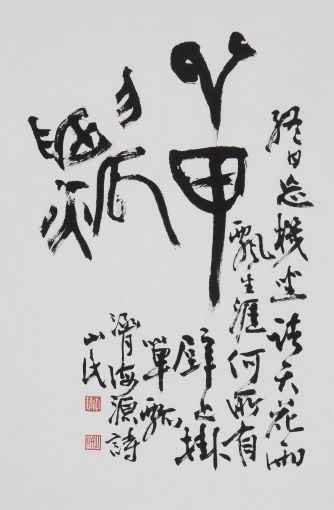 單瓢
終日忘機坐諸天花雨
飄生涯何所有
壁上掛
單瓢
海源詩
山民